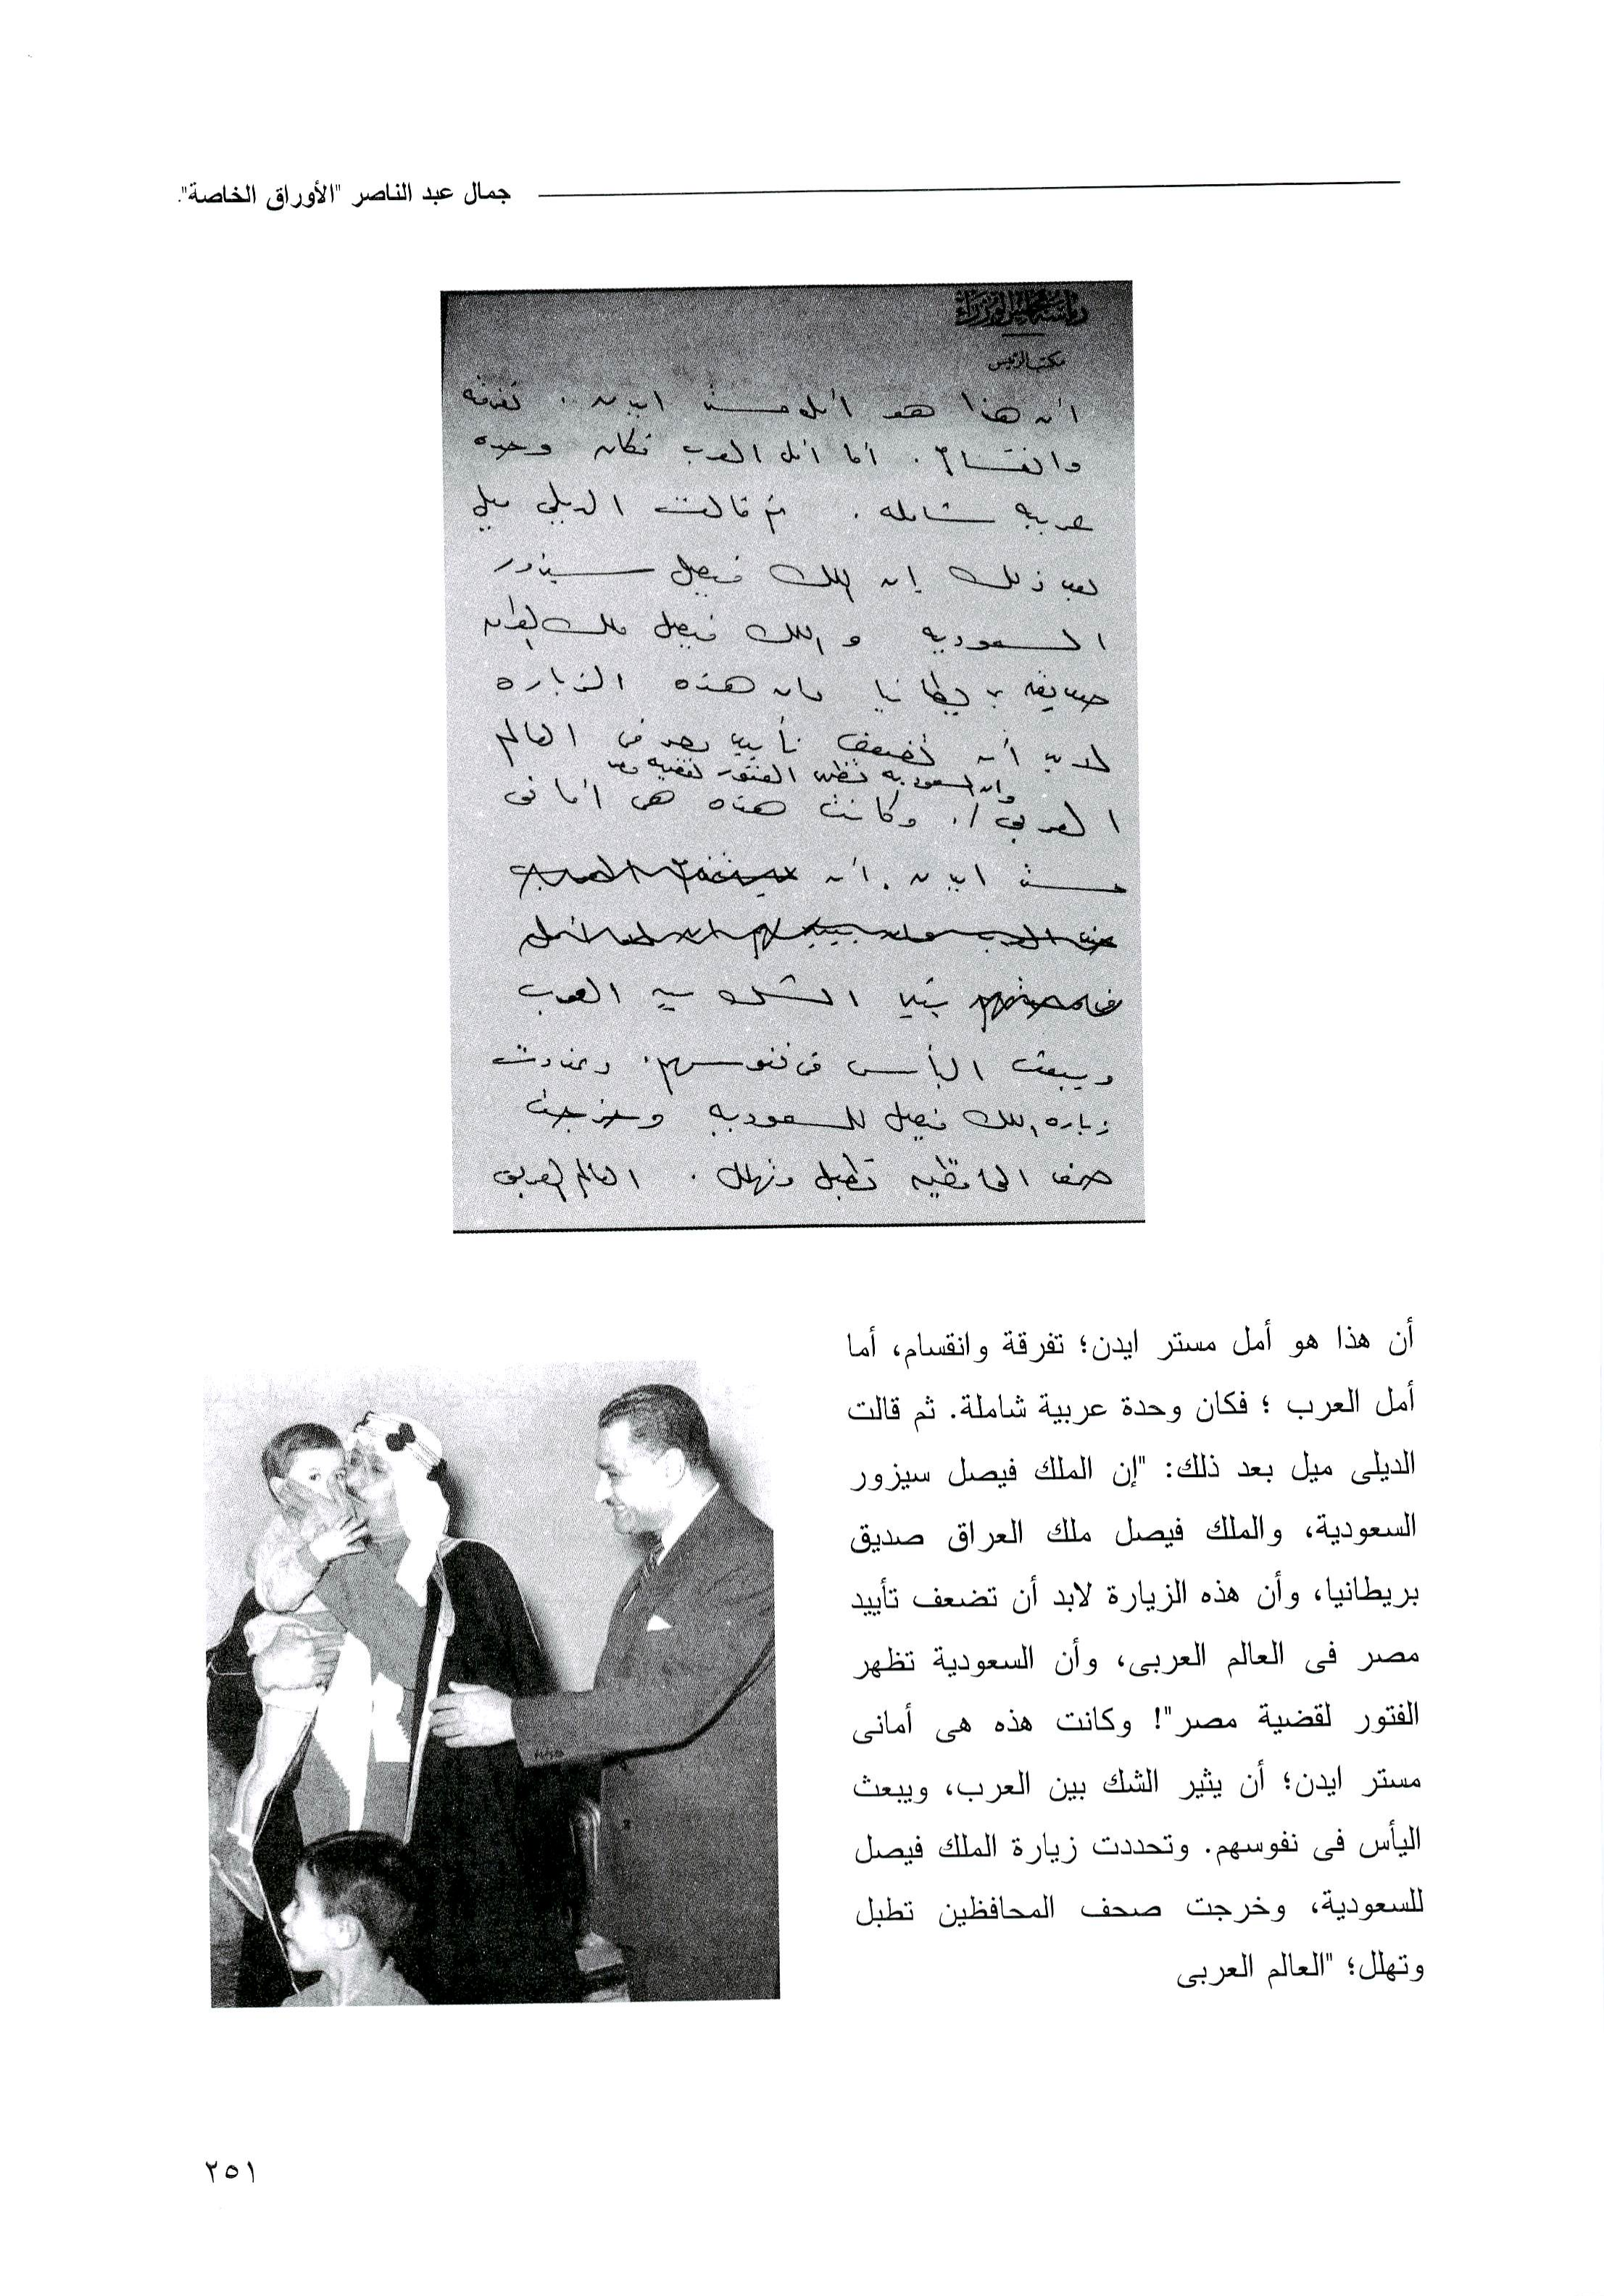 جمال عبد الناصر "الأوراق الخاصة".
رئاسة مجلس الوزراء
مكتب الرئيس
أن هذا هو أمل مستر ايدن . تفرقه
وانقسام . أما أمل العرب فكان وحده
عربيه شامله . ثم قالت الديلى ميل
بعد ذلك إن الملك فيصل سيزور
السعوديه والملك فيصل ملك العراق
صديق بريطانيا وان هذه الزياره
لابد أن تضعف تأييد مصر فى العالم
وان السعوديه تظهر الفتور لقضيه مصر
العربى /. وكانت هذه هى أمانى
مستر ايدن . أن
يثير الشك بين العرب
ويبعث اليأس فى نفوسهم . وتحددت
زياره الملك فيصل للسعوديه وخرجت
صحف المحافظين تطبل وتهلل . العالم العربى
أن هذا هو أمل مستر ايدن؛ تفرقة وانقسام، أما
أمل العرب ؛ فكان وحدة عربية شاملة. ثم قالت
الديلى ميل بعد ذلك: "إن الملك فيصل سيزور
السعودية، والملك فيصل ملك العراق صديق
بريطانيا، وأن هذه الزيارة لابد أن تضعف تأييد
مصر فى العالم العربى، وأن السعودية تظهر
الفتور لقضية مصر"! وكانت هذه هى أمانى
مستر ايدن؛ أن يثير الشك بين العرب، ويبعث
اليأس فى نفوسهم. وتحددت زيارة الملك فيصل
للسعودية، وخرجت صحف المحافظين تطبل
وتهلل؛ "العالم العربى
٢٥١